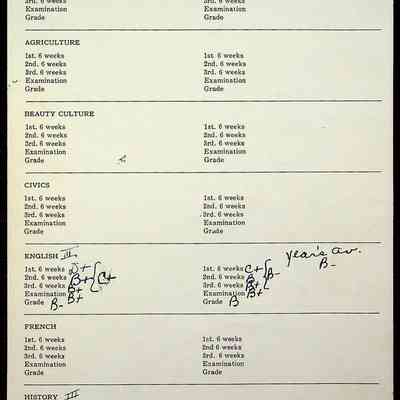 3rd. 6 weeks 3rd. 6 weeks
Examination Examination
Grade Grade
AGRICULTURE
1st. 6 weeks 1st. 6 weeks
2nd. 6 weeks 2nd. 6 weeks
3rd. 6 weeks 3rd. 6 weeks
Examination Examination
Grade Grade
BEAUTY CULTURE
1st. 6 weeks 1st. 6 weeks
2nd. 6 weeks 2nd. 6 weeks
3rd. 6 weeks 3rd. 6 weeks
Examination Examination
Grade Grade
CIVICS
1st. 6 weeks 1st. 6 weeks
2nd. 6 weeks 2nd. 6 weeks
3rd. 6 weeks 3rd. 6 weeks
Examination Examination
Grade Grade
ENGLISH III year's av.
B-
1st. 6 weeks D+ 1st. 6 weeks C+
2nd. 6 weeks B+ C+ 2nd. 6 weeks B B-
3rd. 6 weeks B+ 3rd. 6 weeks B+
Examination B+ Examination B+
Grade B- Grade B
FRENCH
1st. 6 weeks 1st. 6 weeks
2nd. 6 weeks 2nd 6 weeks
3rd. 6 weeks 3rd. 6 weeks
Examination Examination
Grade Grade
HISTORY III